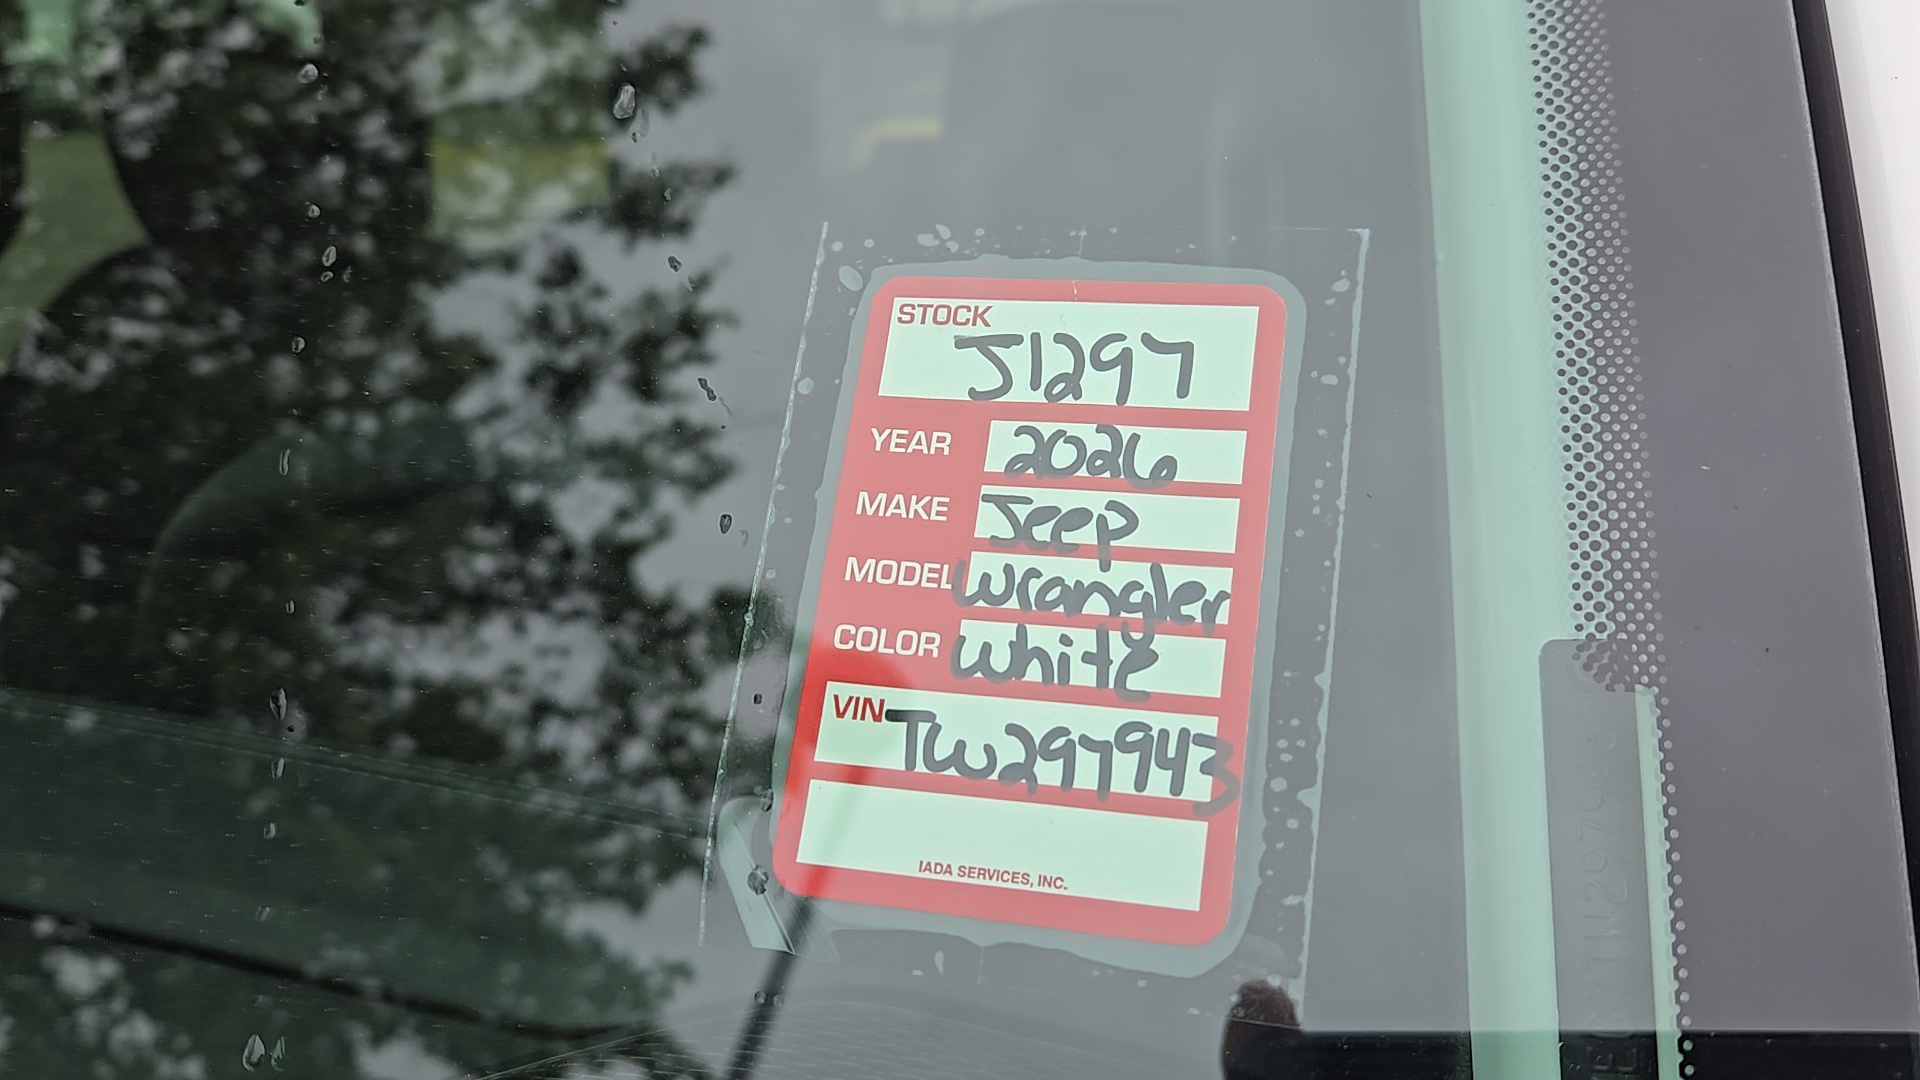 STOCK
J1297
YEAR 2026
MAKE Jeep
MODEL Wrangler
COLOR White
VIN TW297943
IADA SERVICES, INC.